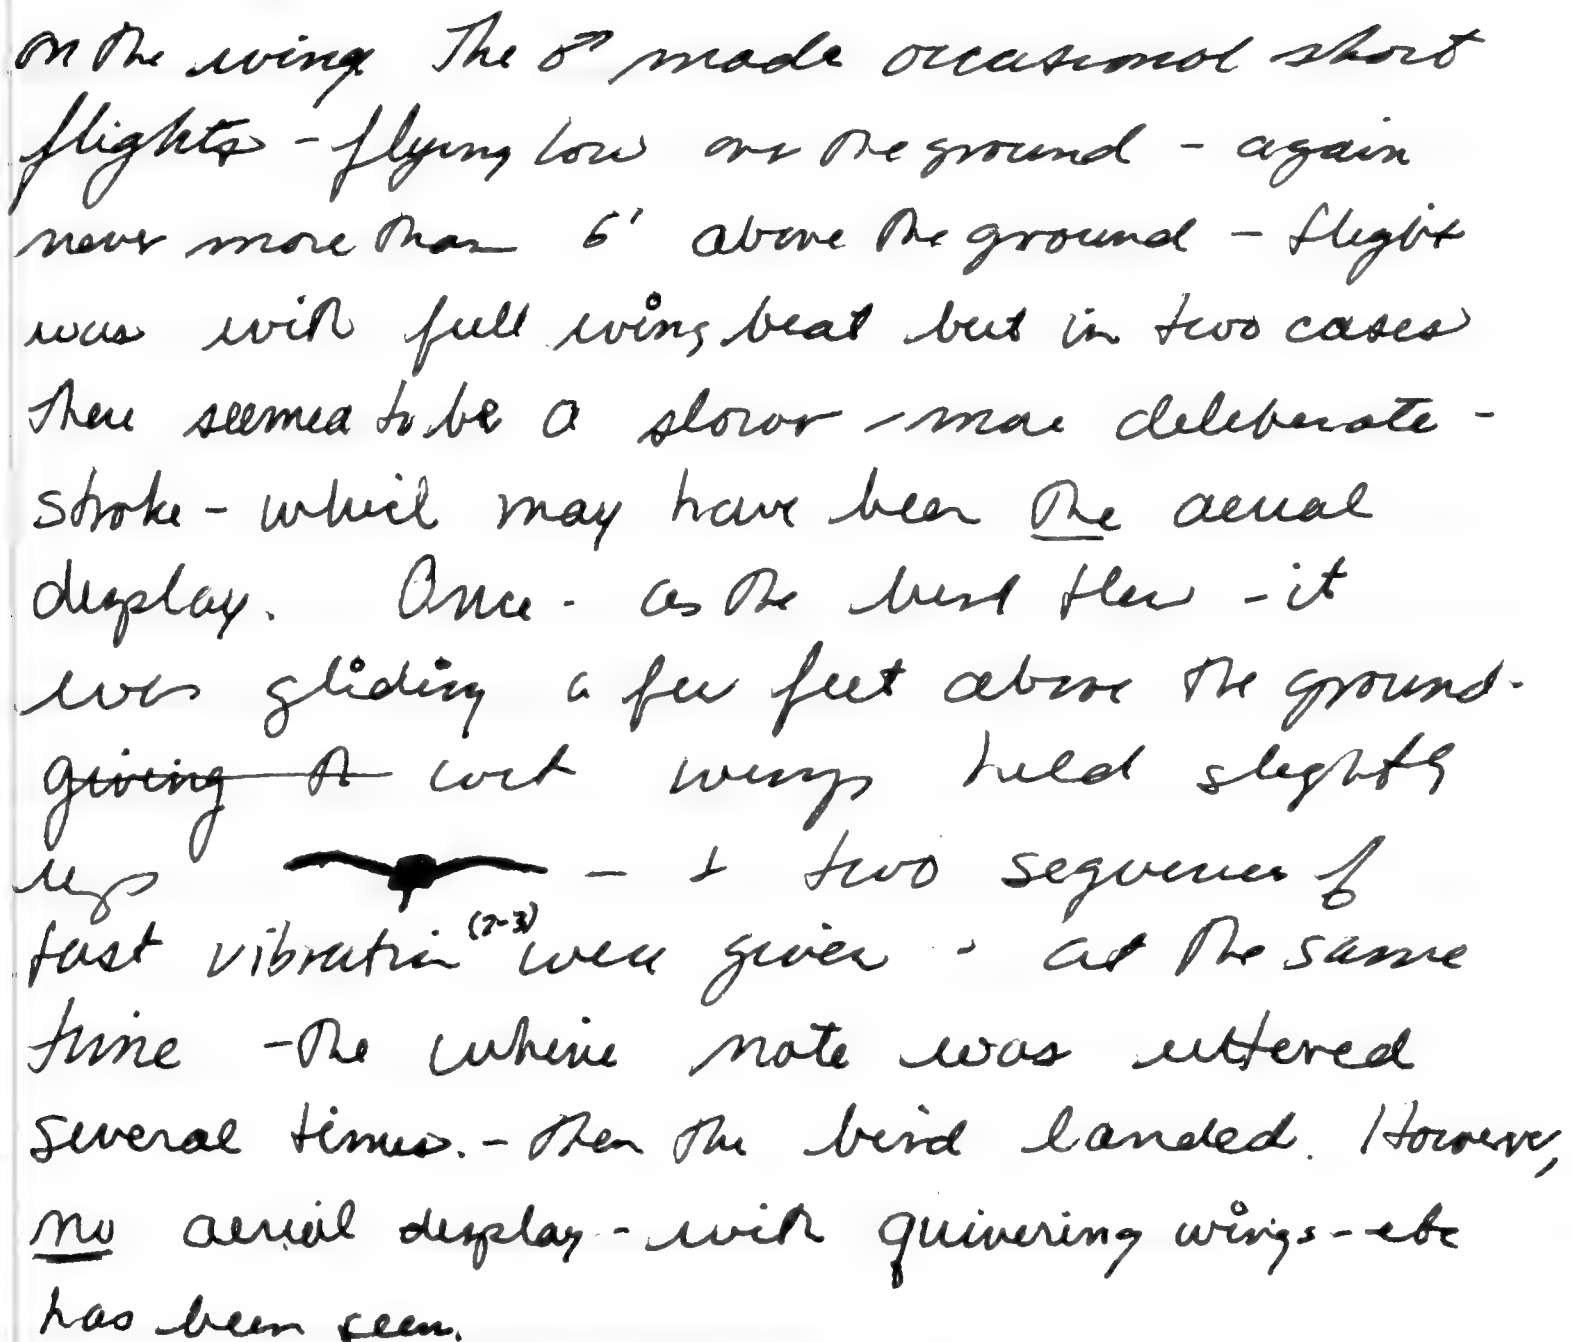 on the wing The ♂ made occasional short
flights - flying low over the ground - again
never more than 6' above the ground - flight
was with full wing beat but in two cases
there seemed to be a slower - more deliberate -
stroke - which may have been the aerial
display. Once - as the bird flew - it
was gliding a few feet above the ground -
giving th with wings held slightly
up - + two sequences of
fast vibration (2-3) were given - at the same
time - the whine note was uttered
several times. - then the bird landed. However,
no aerial display - with quivering wings - etc
has been seen.